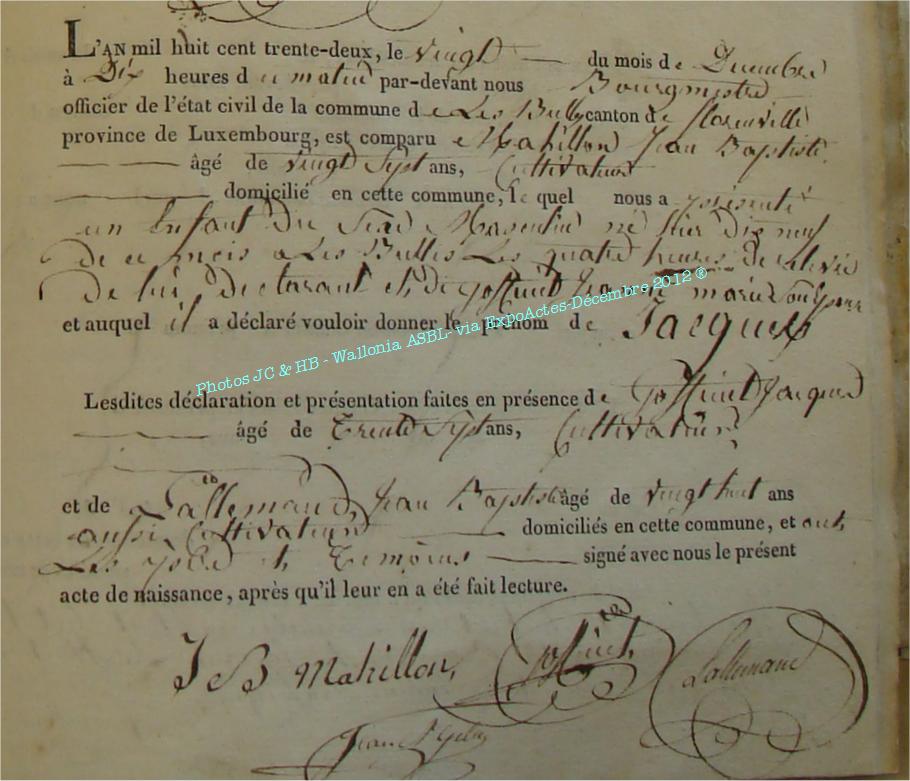 L'AN mil huit cent trente-deux, le vingt du mois de Decembre
à Dix heures du matin par-devant nous Bourgmestre
officier de l'état civil de la commune de Les Bulles canton de florenville
province de Luxembourg, est comparu Mahillon Jean Baptiste
âgé de vingt Sept ans, Cultivateur
domicilié en cette commune, lequel nous a présenté
un Enfant du Sexe Masculin né hier dix neuf
de ce mois a Les Bulles Les quatre heures de
De lui Declarant et de Goffinet Jeanne marie Son
et auquel il a déclaré vouloir donner le prénom de Jacques
Photos JC & HB - Wallonia ASBL- via ExpoActes-Décembre 2012 ®
Lesdites déclaration et présentation faites en présence de Goffinet Jacques
âgé de Trente Sept ans, Cultivateur
et de Lallemand, Jean Baptiste âgé de vingt huit ans
aussi Cultivateur domiciliés en cette commune, et ont
Les et Temoins signé avec nous le présent
acte de naissance, après qu'il leur en a été fait lecture.
J B Mahillon, Goffinet, Lallemand